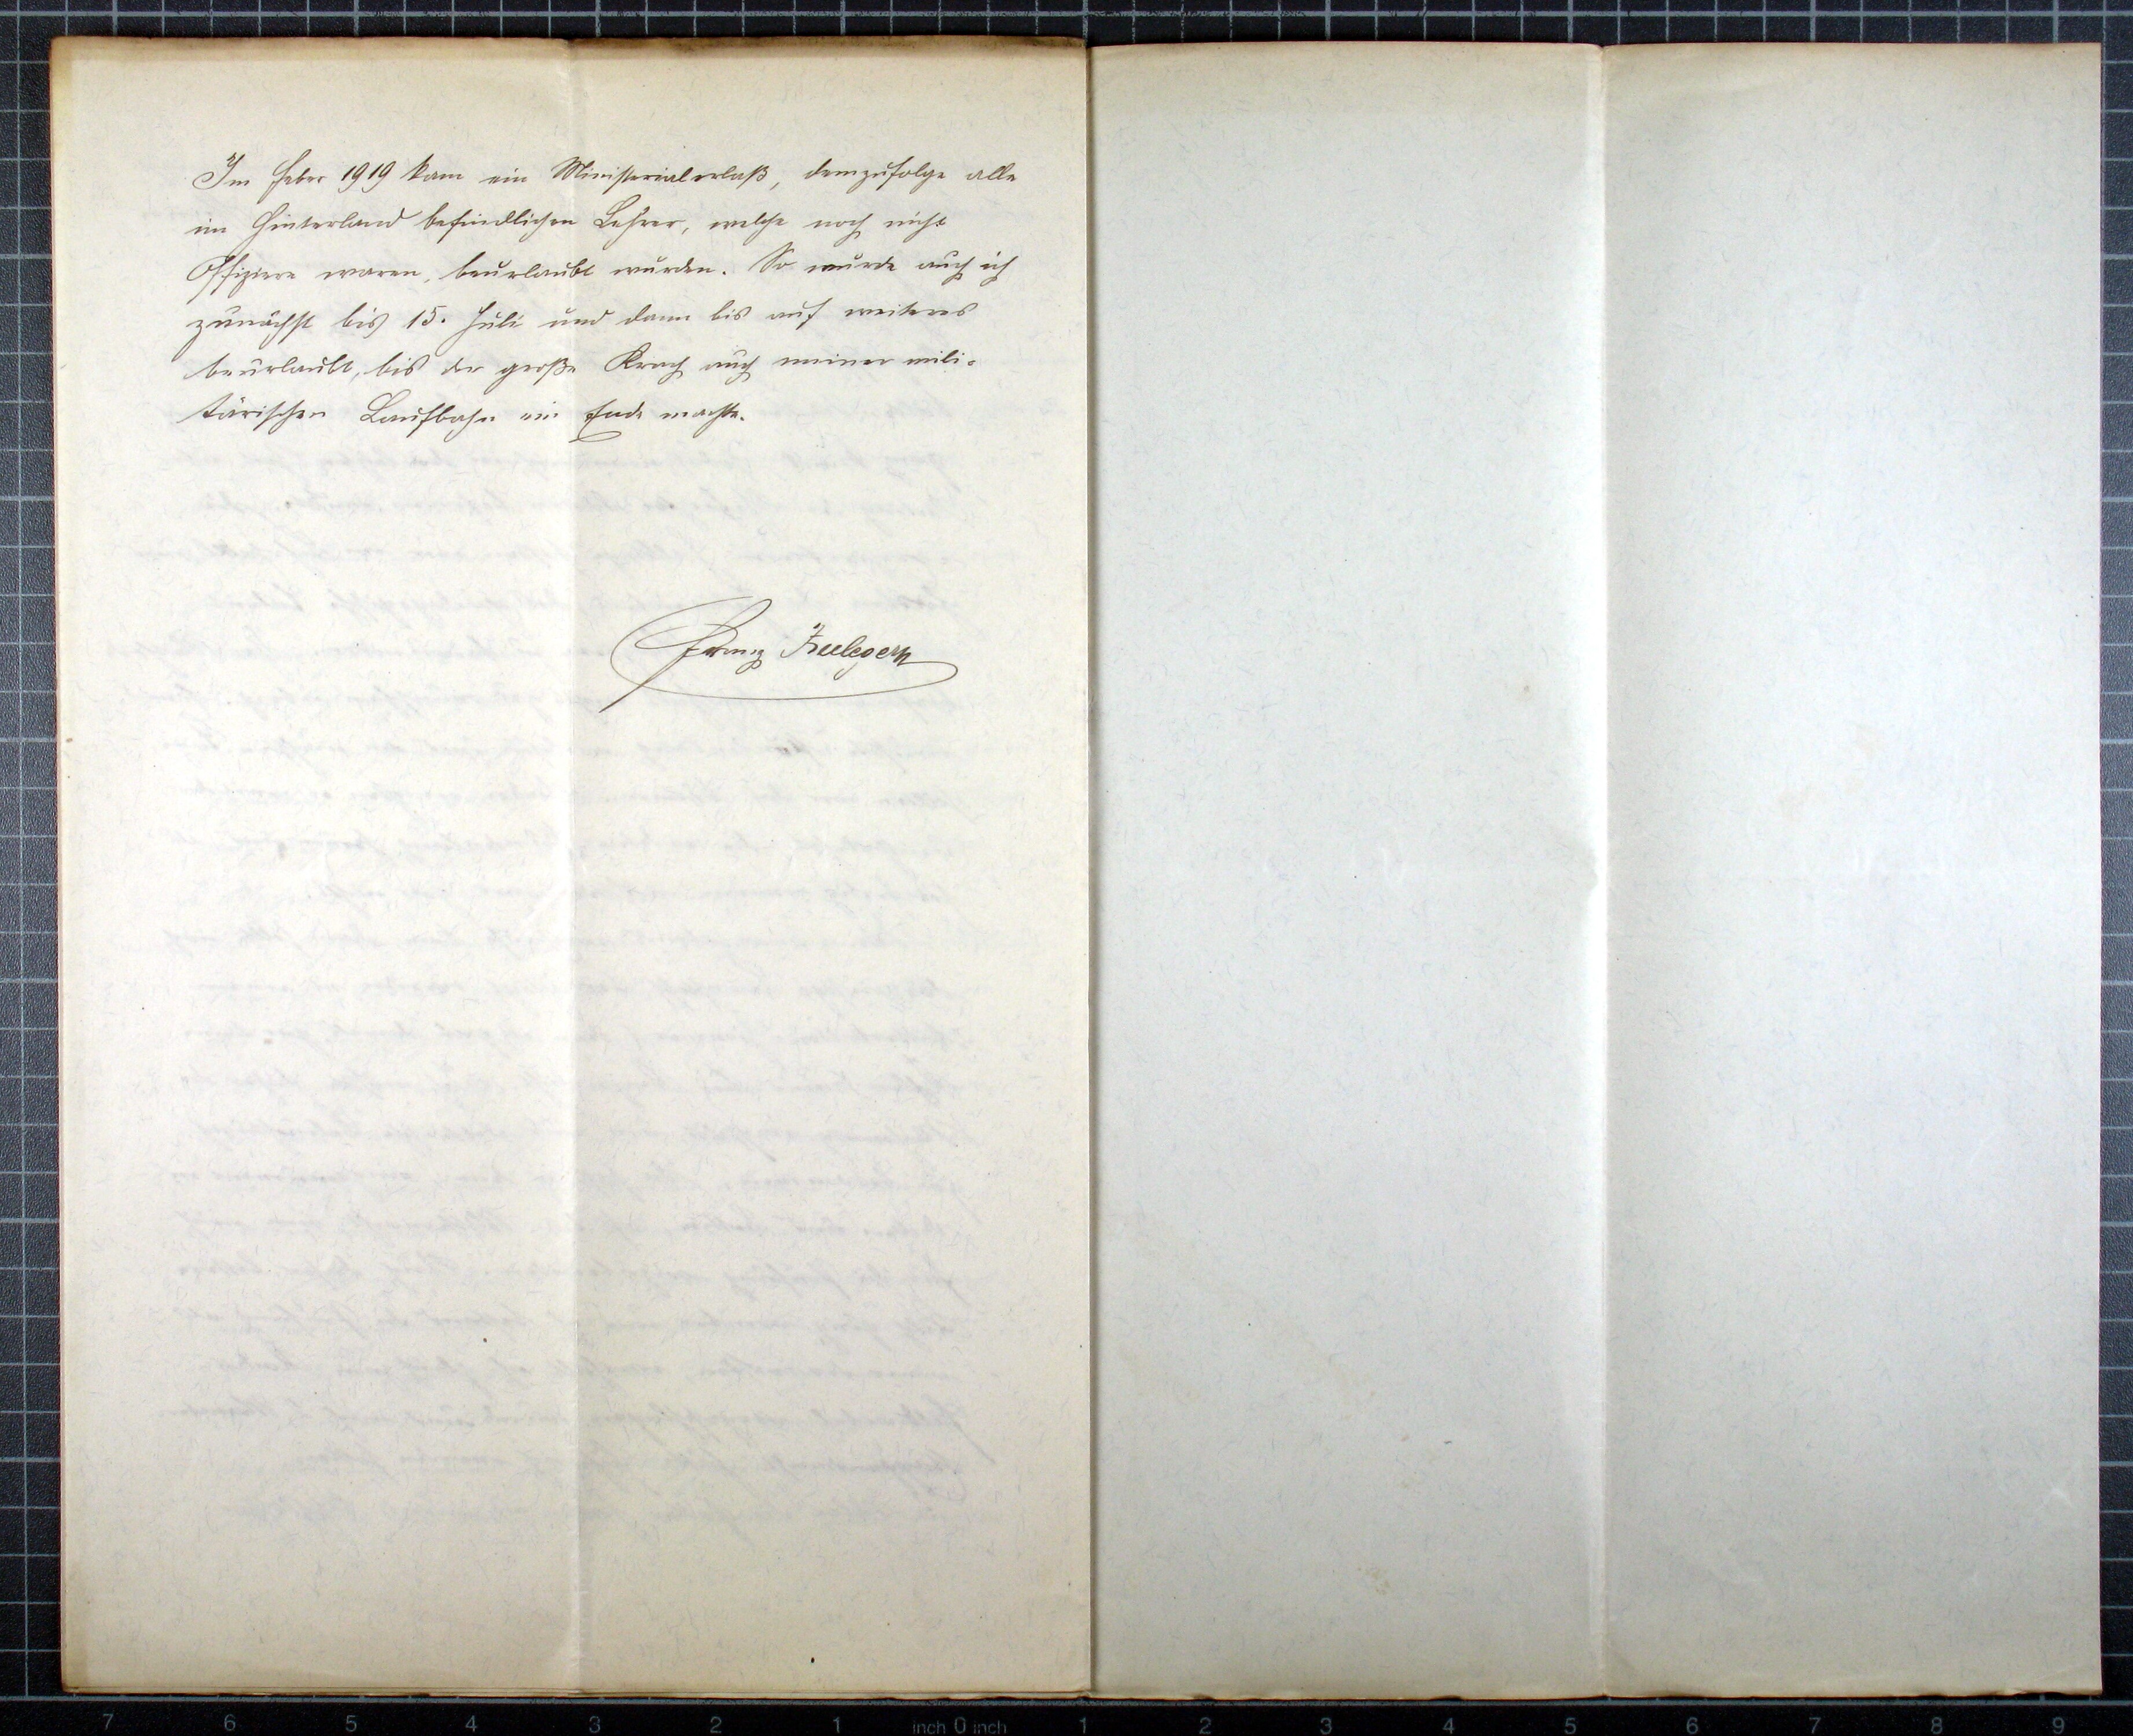 Im Feber 1919 kam ein Ministerialerlaß, demzufolge alle
im Hinterland befindlichen Lehrer, welche noch nicht
Offiziere waren, beurlaubt wurden. So wurde auch ich
zunächst bis 15. Juli und dann bis auf weiteres
beurlaubt, bis der große Krach auch meiner mili-
tärischen Laufbahn ein Ende machte.
Franz
7 6 5 4 3 2 1 inch 0 inch 1 2 3 4 5 6 7 8 9